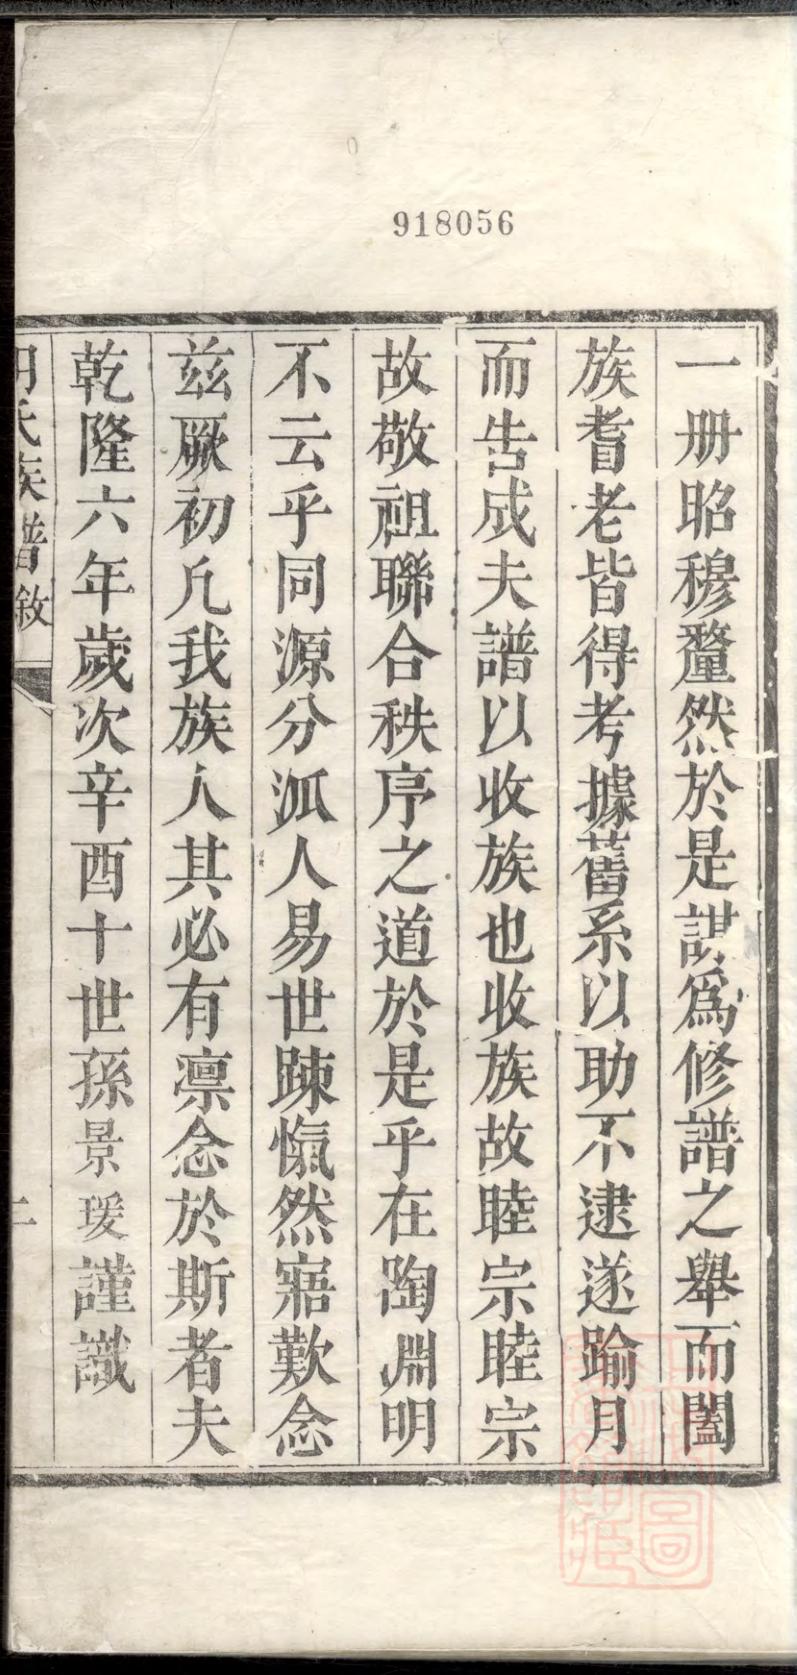 918056
一册昭穆釐然於是謀爲修譜之舉而闔
族耆老皆得考據舊系以助不逮遂踰月
而告成夫譜以收族也收族故睦宗睦宗
故敬祖聯合秩序之道於是乎在陶淵明
不云乎同源分派人易世踈愾然寤歎念
兹厥初凡我族人其必有凛念於斯者夫
乾隆六年歲次辛酉十世孫景瑗謹識
氏族譜敘
二